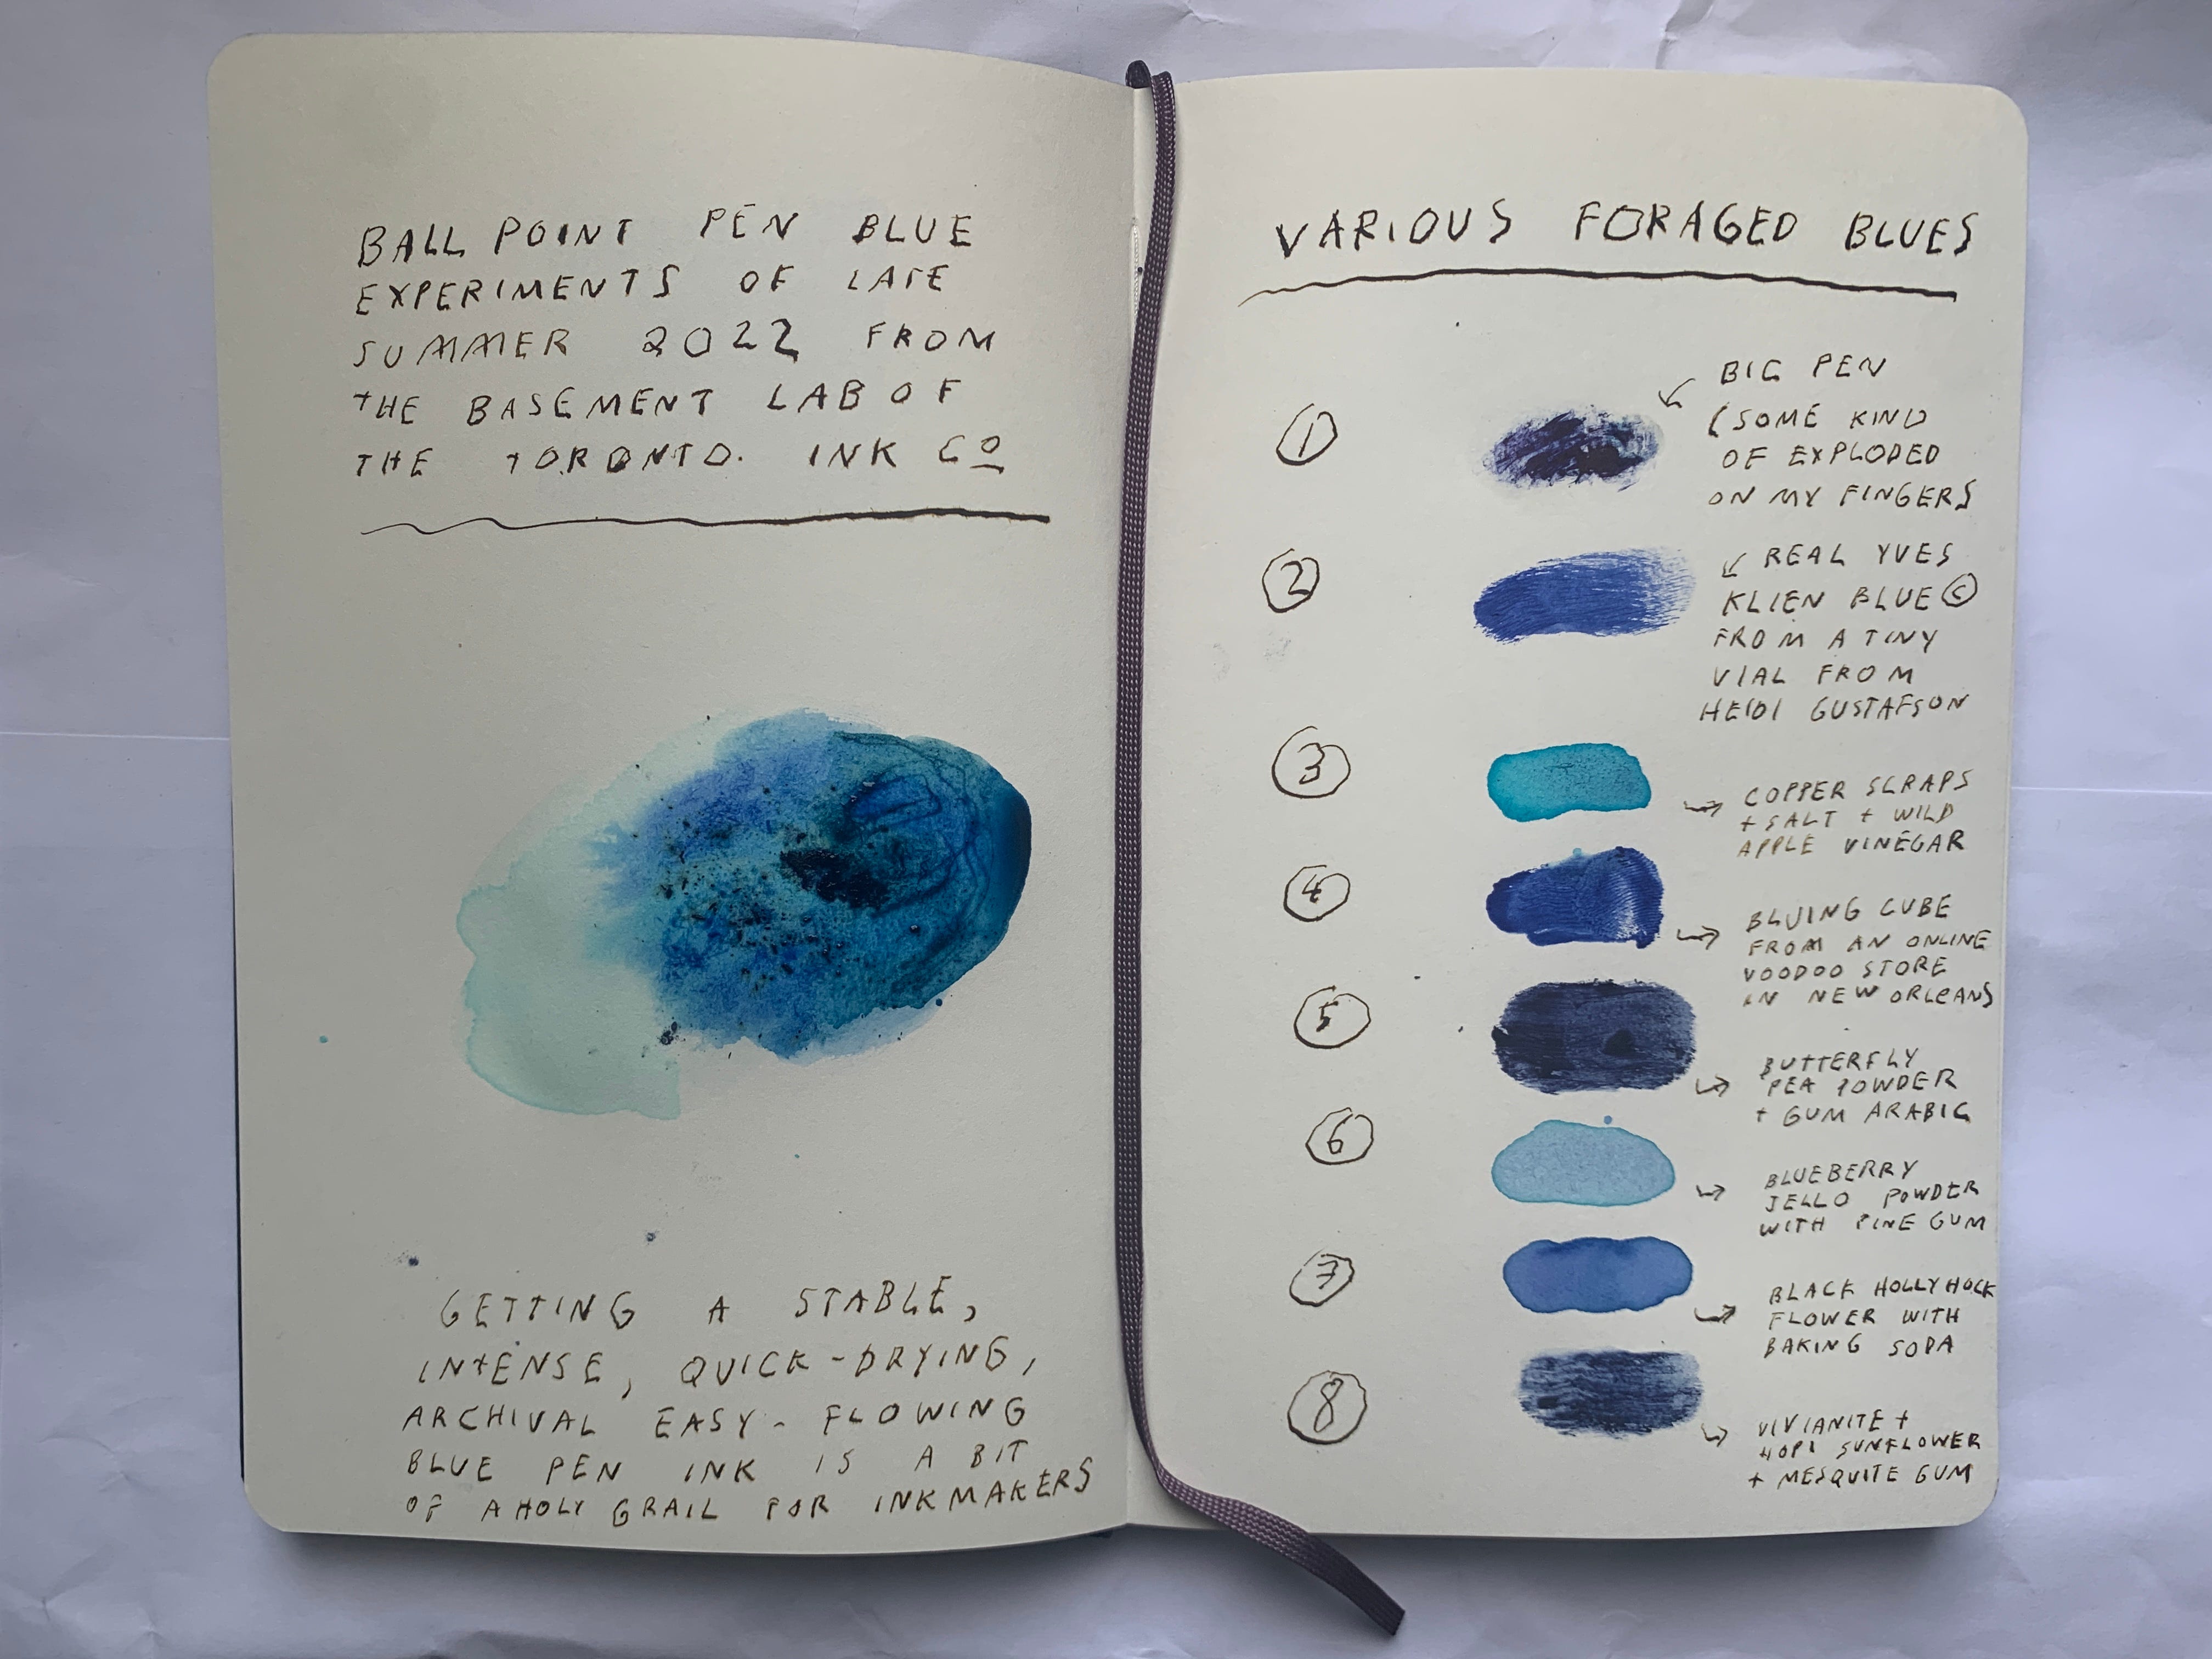 BALL POINT PEN BLUE
EXPERIMENTS OF LATE
SUMMER 2022 FROM
THE BASEMENT LAB OF
THE TORONTO. INK CO
GETTING A STABLE,
INTENSE, QUICK-DRYING,
ARCHIVAL EASY-FLOWING
BLUE PEN INK IS A BIT
OF A HOLY GRAIL FOR INKMAKERS
VARIOUS FORAGED BLUES
1
BIC PEN
(SOME KIND
OF EXPLODED
ON MY FINGERS
2
REAL YVES
KLIEN BLUE ©
FROM A TINY
VIAL FROM
HEIDI GUSTAFSON
3
COPPER SCRAPS
+ SALT + WILD
APPLE VINEGAR
4
BLUING CUBE
FROM AN ONLINE
VOODOO STORE
IN NEW ORLEANS
5
BUTTERFLY
PEA POWDER
+ GUM ARABIC
6
BLUEBERRY
JELLO POWDER
WITH PINE GUM
7
BLACK HOLLYHOCK
FLOWER WITH
BAKING SODA
8
VIVIANITE +
HOPI SUNFLOWER
+ MESQUITE GUM